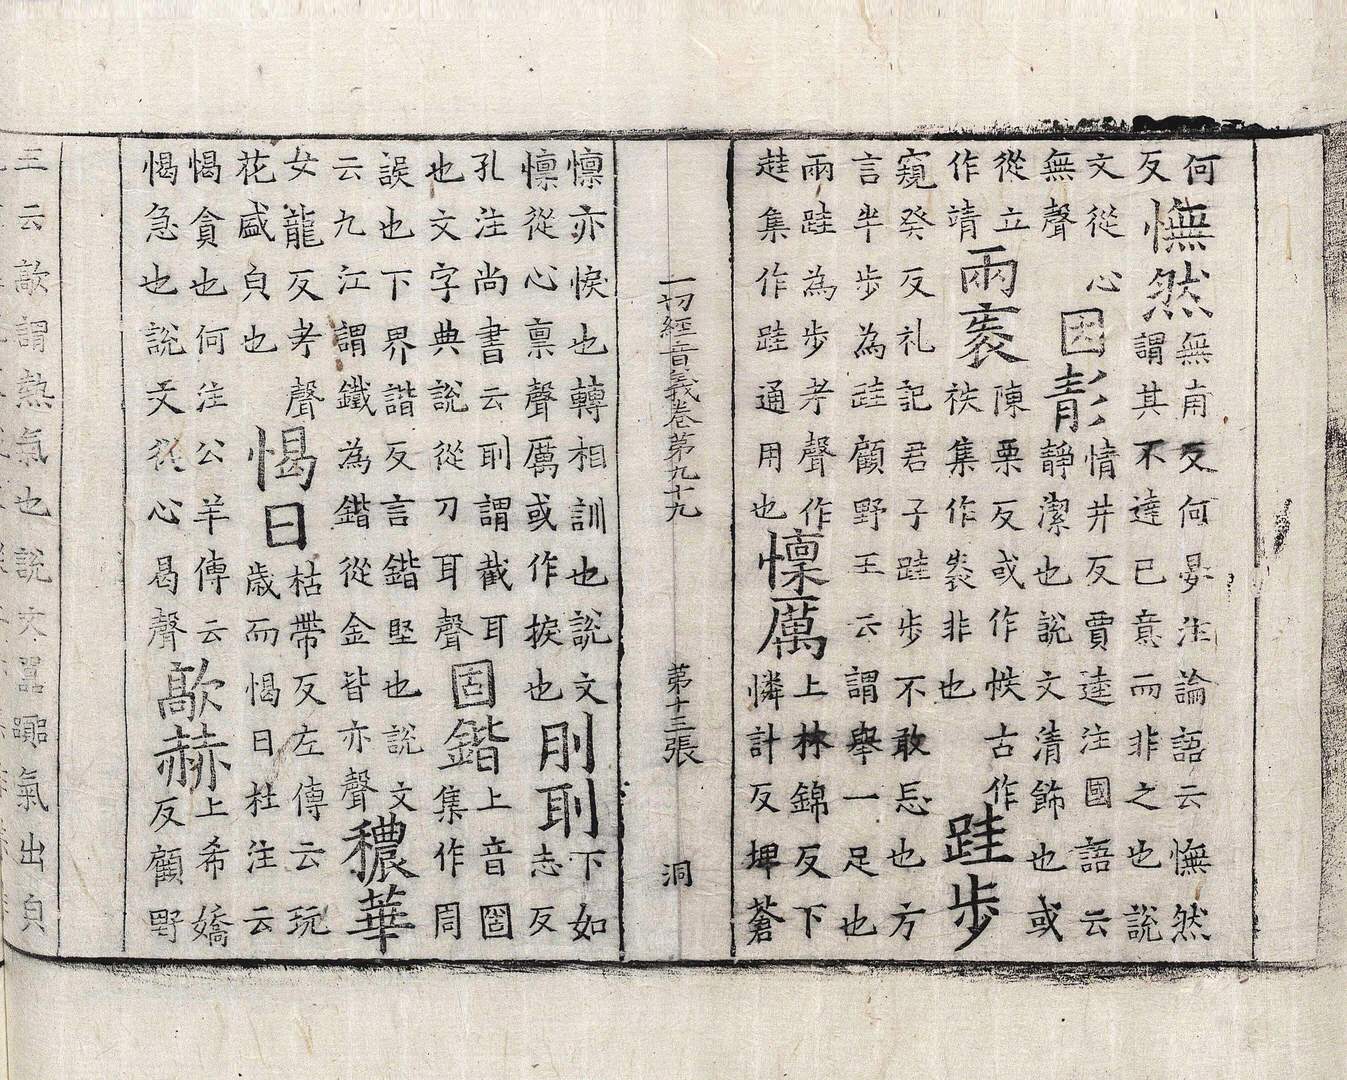 何
反
憮然
無甫反何晏注論語云憮然
謂其不達己意而非之也說
文從心
無聲
因靘
情井反賈逵注國語云
靜潔也說文清飾也或
從立
作靖
兩袠
陳栗反或作帙古作
袟集作袠非也
跬步
窺癸反礼記君子跬步不敢忘也方
言半步為跬顧野王云謂舉一足也
兩跬為步考聲作
趌集作跬通用也
懍厲
上林錦反下
憐計反埤蒼
一切經音義卷第九十九 第十三張 洞
懍亦悷也轉相訓也說文
懍從心稟聲厲或作捩也
刖刵
下如
志反
孔注尚書云刵謂截耳
也文字典說從刀耳聲
固鍇
上音固
集作周
誤也下界諧反言鍇堅也說文
云九江謂鐵為鍇從金皆亦聲
穠華
女龍反考聲
花盛皃也
愒日
枯帶反左傳云玩
歲而愒日杜注云
愒貪也何注公羊傳云
愒急也說文從心曷聲
歊赫
上希嬌
反顧野
王云歊謂熱氣也說文歊歊氣出皃